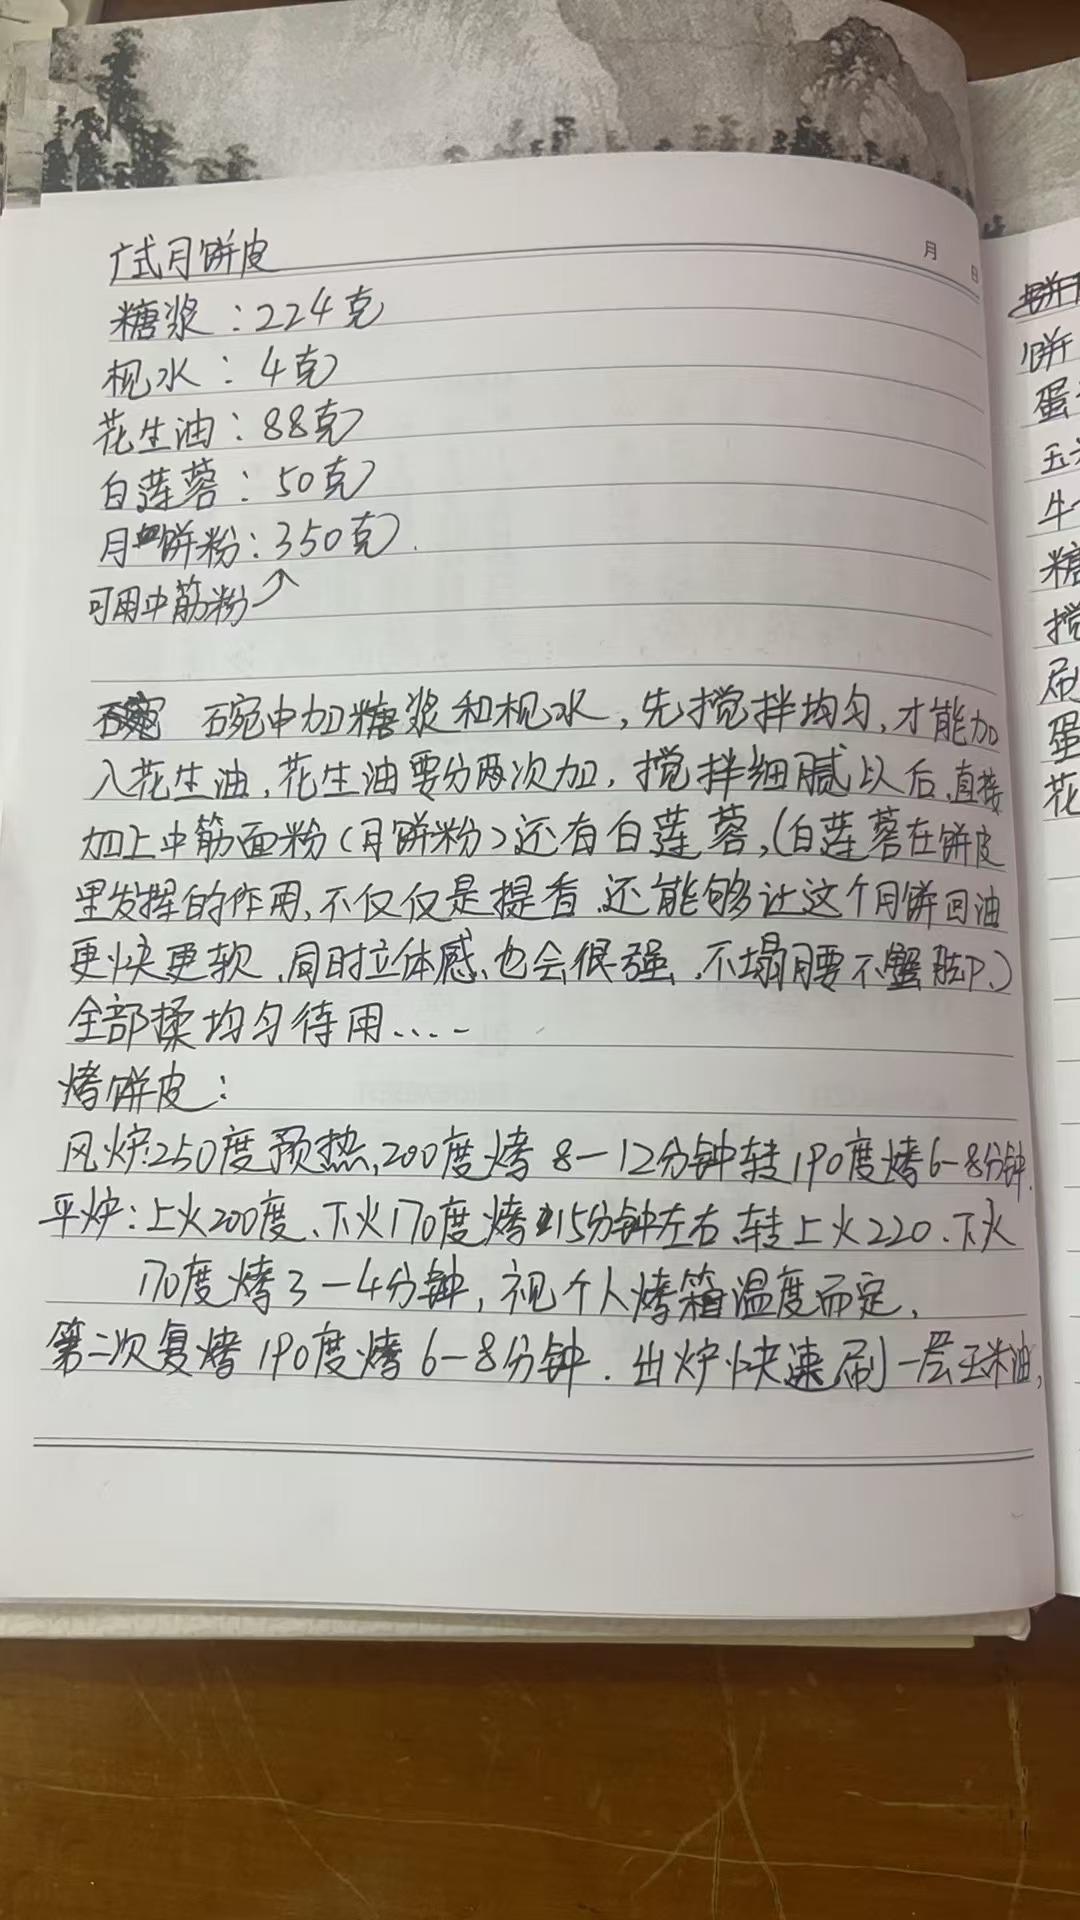 月 日
广式月饼皮
糖浆：224克
枧水：4克
花生油：88克
白莲蓉：50克
月饼粉：350克.
可用中筋粉↗
碗中加糖浆和枧水，先搅拌均匀，才能加
入花生油，花生油要分两次加，搅拌细腻以后、直接
加上中筋面粉（月饼粉）还有白莲蓉，（白莲蓉在饼皮
里发挥的作用，不仅仅是提香、还能够让这个月饼回油
更快更软、同时立体感、也会很强、不塌腰不蟹脚。）
全部揉均匀待用……
烤饼皮：
风炉:250度预热，200度烤 8-12分钟转190度烤6-8分钟.
平炉：上火200度、下火170度烤15分钟左右、转上火220、下火
170度烤3-4分钟，视个人烤箱温度而定，
第二次复烤190度烤6-8分钟．出炉快速刷一层玉米油，
饼
蛋
玉
牛
糖
搅
刷
蛋
花